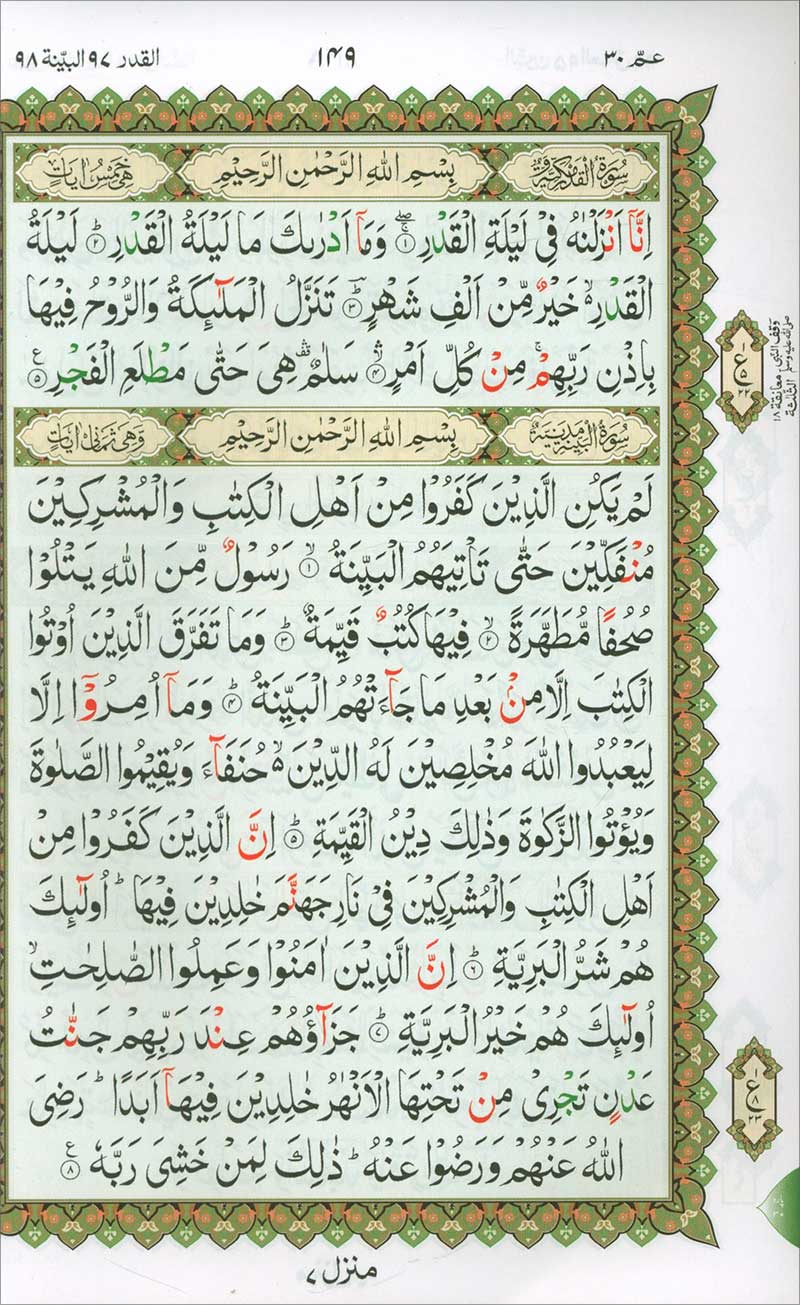 عـمّ ٣٠
١٤٩
القدر ٩٧ البيّنة ٩٨
سُوْرَةُ الْقَدْرِ مَكِّيَّةٌ
بِسْمِ اللهِ الرَّحْمٰنِ الرَّحِيْمِ
هِيَ خَمْسُ اٰيَاتٍ
اِنَّاۤ اَنْزَلْنٰهُ فِيْ لَيْلَةِ الْقَدْرِ ۚۖ ۝١ وَمَاۤ اَدْرٰىكَ مَا لَيْلَةُ الْقَدْرِ ؕ ۝٢ لَيْلَةُ
الْقَدْرِ ۙ۬ خَيْرٌ مِّنْ اَلْفِ شَهْرٍ ؕ ۝٣ تَنَزَّلُ الْمَلٰٓئِكَةُ وَالرُّوْحُ فِيْهَا
بِاِذْنِ رَبِّهِمْ ۚ مِنْ كُلِّ اَمْرٍ ۙۛ ۝٤ سَلٰمٌ ۛ۫ هِيَ حَتّٰى مَطْلَعِ الْفَجْرِ ۝٥ ع
ع
١
٥
٢٢
وقف النبي صلى الله عليه وسلم
معانقة ١٨ الثلاثة
سُوْرَةُ الْبَيِّنَةِ مَدَنِيَّةٌ
بِسْمِ اللهِ الرَّحْمٰنِ الرَّحِيْمِ
وَّهِيَ ثَمَانِيْ اٰيَاتٍ
لَمْ يَكُنِ الَّذِيْنَ كَفَرُوْا مِنْ اَهْلِ الْكِتٰبِ وَالْمُشْرِكِيْنَ
مُنْفَكِّيْنَ حَتّٰى تَاْتِيَهُمُ الْبَيِّنَةُ ۙ ۝١ رَسُوْلٌ مِّنَ اللهِ يَتْلُوْا
صُحُفًا مُّطَهَّرَةً ۙ ۝٢ فِيْهَا كُتُبٌ قَيِّمَةٌ ؕ ۝٣ وَمَا تَفَرَّقَ الَّذِيْنَ اُوْتُوا
الْكِتٰبَ اِلَّا مِنْۢ بَعْدِ مَا جَآءَتْهُمُ الْبَيِّنَةُ ؕ ۝٤ وَمَاۤ اُمِرُوْۤا اِلَّا
لِيَعْبُدُوا اللهَ مُخْلِصِيْنَ لَهُ الدِّيْنَ ۙ۬ حُنَفَآءَ وَيُقِيْمُوا الصَّلٰوةَ
وَيُؤْتُوا الزَّكٰوةَ وَذٰلِكَ دِيْنُ الْقَيِّمَةِ ؕ ۝٥ اِنَّ الَّذِيْنَ كَفَرُوْا مِنْ
اَهْلِ الْكِتٰبِ وَالْمُشْرِكِيْنَ فِيْ نَارِ جَهَنَّمَ خٰلِدِيْنَ فِيْهَا ؕ اُولٰٓئِكَ
هُمْ شَرُّ الْبَرِيَّةِ ؕ ۝٦ اِنَّ الَّذِيْنَ اٰمَنُوْا وَعَمِلُوا الصّٰلِحٰتِ ۙ
اُولٰٓئِكَ هُمْ خَيْرُ الْبَرِيَّةِ ؕ ۝٧ جَزَآؤُهُمْ عِنْدَ رَبِّهِمْ جَنّٰتُ
عَدْنٍ تَجْرِيْ مِنْ تَحْتِهَا الْاَنْهٰرُ خٰلِدِيْنَ فِيْهَاۤ اَبَدًا ؕ رَضِيَ
اللهُ عَنْهُمْ وَرَضُوْا عَنْهُ ؕ ذٰلِكَ لِمَنْ خَشِيَ رَبَّهٗ ۝٨ ع
ع
١
٨
٢٣
منزل ٧